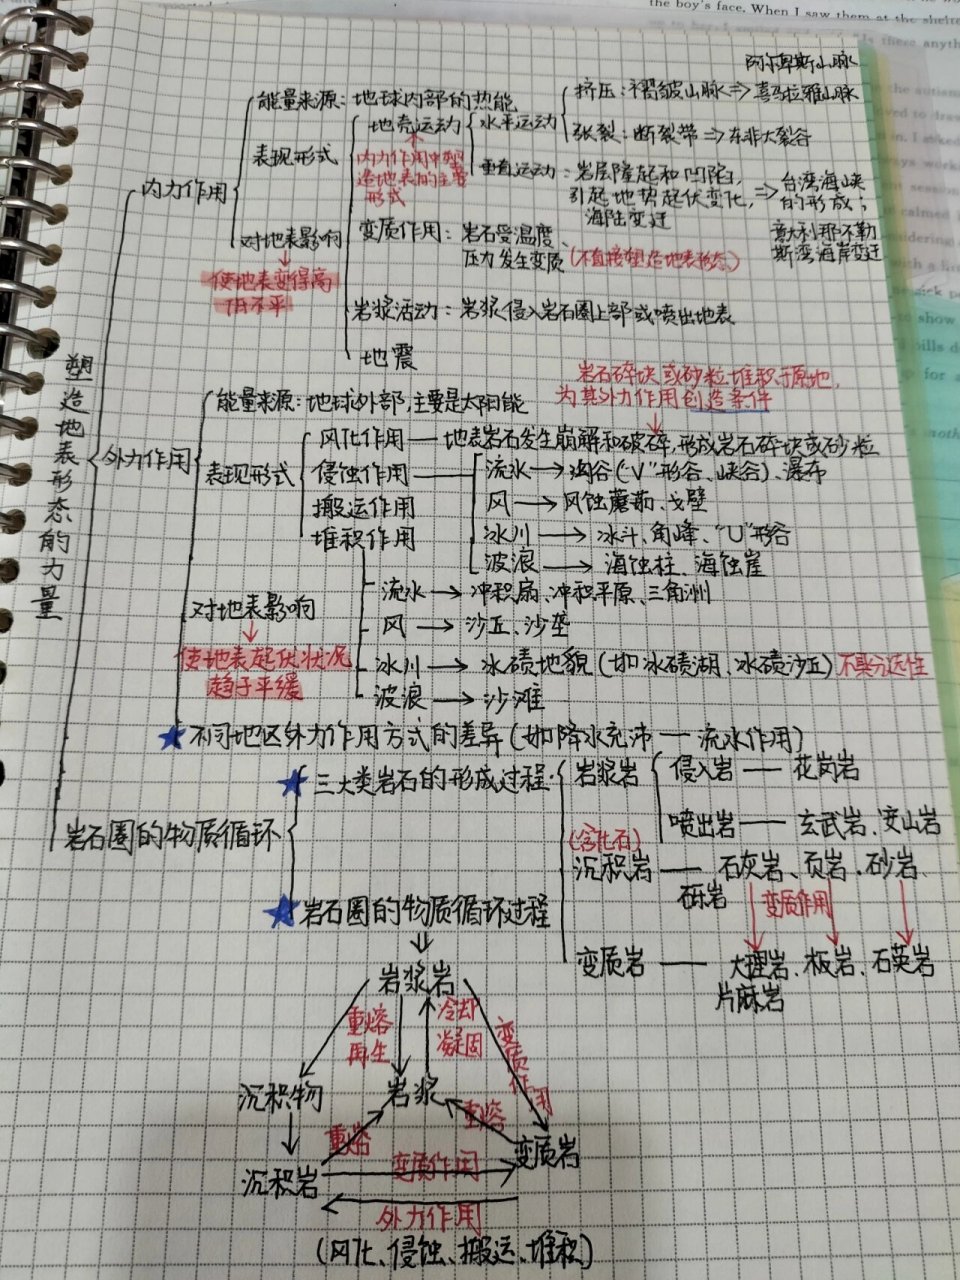 the boy's face. When I saw them at the shelte
阿尔卑斯山脉
能量来源:地球内部的热能
挤压:褶皱山脉⇒喜马拉雅山脉
地壳运动
水平运动
张裂:断裂带⇒东非大裂谷
表现形式
内力作用中塑
造地表的主要
形式
垂直运动:岩层隆起和凹陷,
引起地势起伏变化,
海陆变迁
⇒台湾海峡
的形成;
意大利那不勒
斯湾海岸变迁
内力作用
对地表影响
变质作用:岩石受温度、
压力发生变质(不直接塑造地表形态)
使地表变得高
低不平
岩浆活动:岩浆侵入岩石圈上部或喷出地表
地震
塑造地表形态的力量
岩石碎块或砂粒堆积于原地,
为其外力作用创造条件
能量来源:地球外部,主要是太阳能
外力作用
表现形式
风化作用—地表岩石发生崩解和破碎,形成岩石碎块或砂粒
侵蚀作用
流水→沟谷("V"形谷、峡谷)、瀑布
搬运作用
风→风蚀蘑菇、戈壁
堆积作用
冰川→冰斗、角峰、"U"形谷
波浪→海蚀柱、海蚀崖
流水→冲积扇、冲积平原、三角洲
对地表影响
风→沙丘、沙垄
使地表起伏状况
趋于平缓
冰川→冰碛地貌(如冰碛湖、冰碛沙丘)不具分选性
波浪→沙滩
★不同地区外力作用方式的差异(如降水充沛—流水作用)
岩石圈的物质循环
★三大类岩石的形成过程:
岩浆岩
侵入岩—花岗岩
喷出岩—玄武岩、安山岩
(含化石)
沉积岩—石灰岩、页岩、砂岩、
砾岩
变质作用
变质岩—大理岩、板岩、石英岩
片麻岩
★岩石圈的物质循环过程
岩浆岩
重熔
再生
冷却
凝固
变质作用
沉积物
岩浆
重熔
重熔
变质岩
沉积岩
变质作用
外力作用
(风化、侵蚀、搬运、堆积)